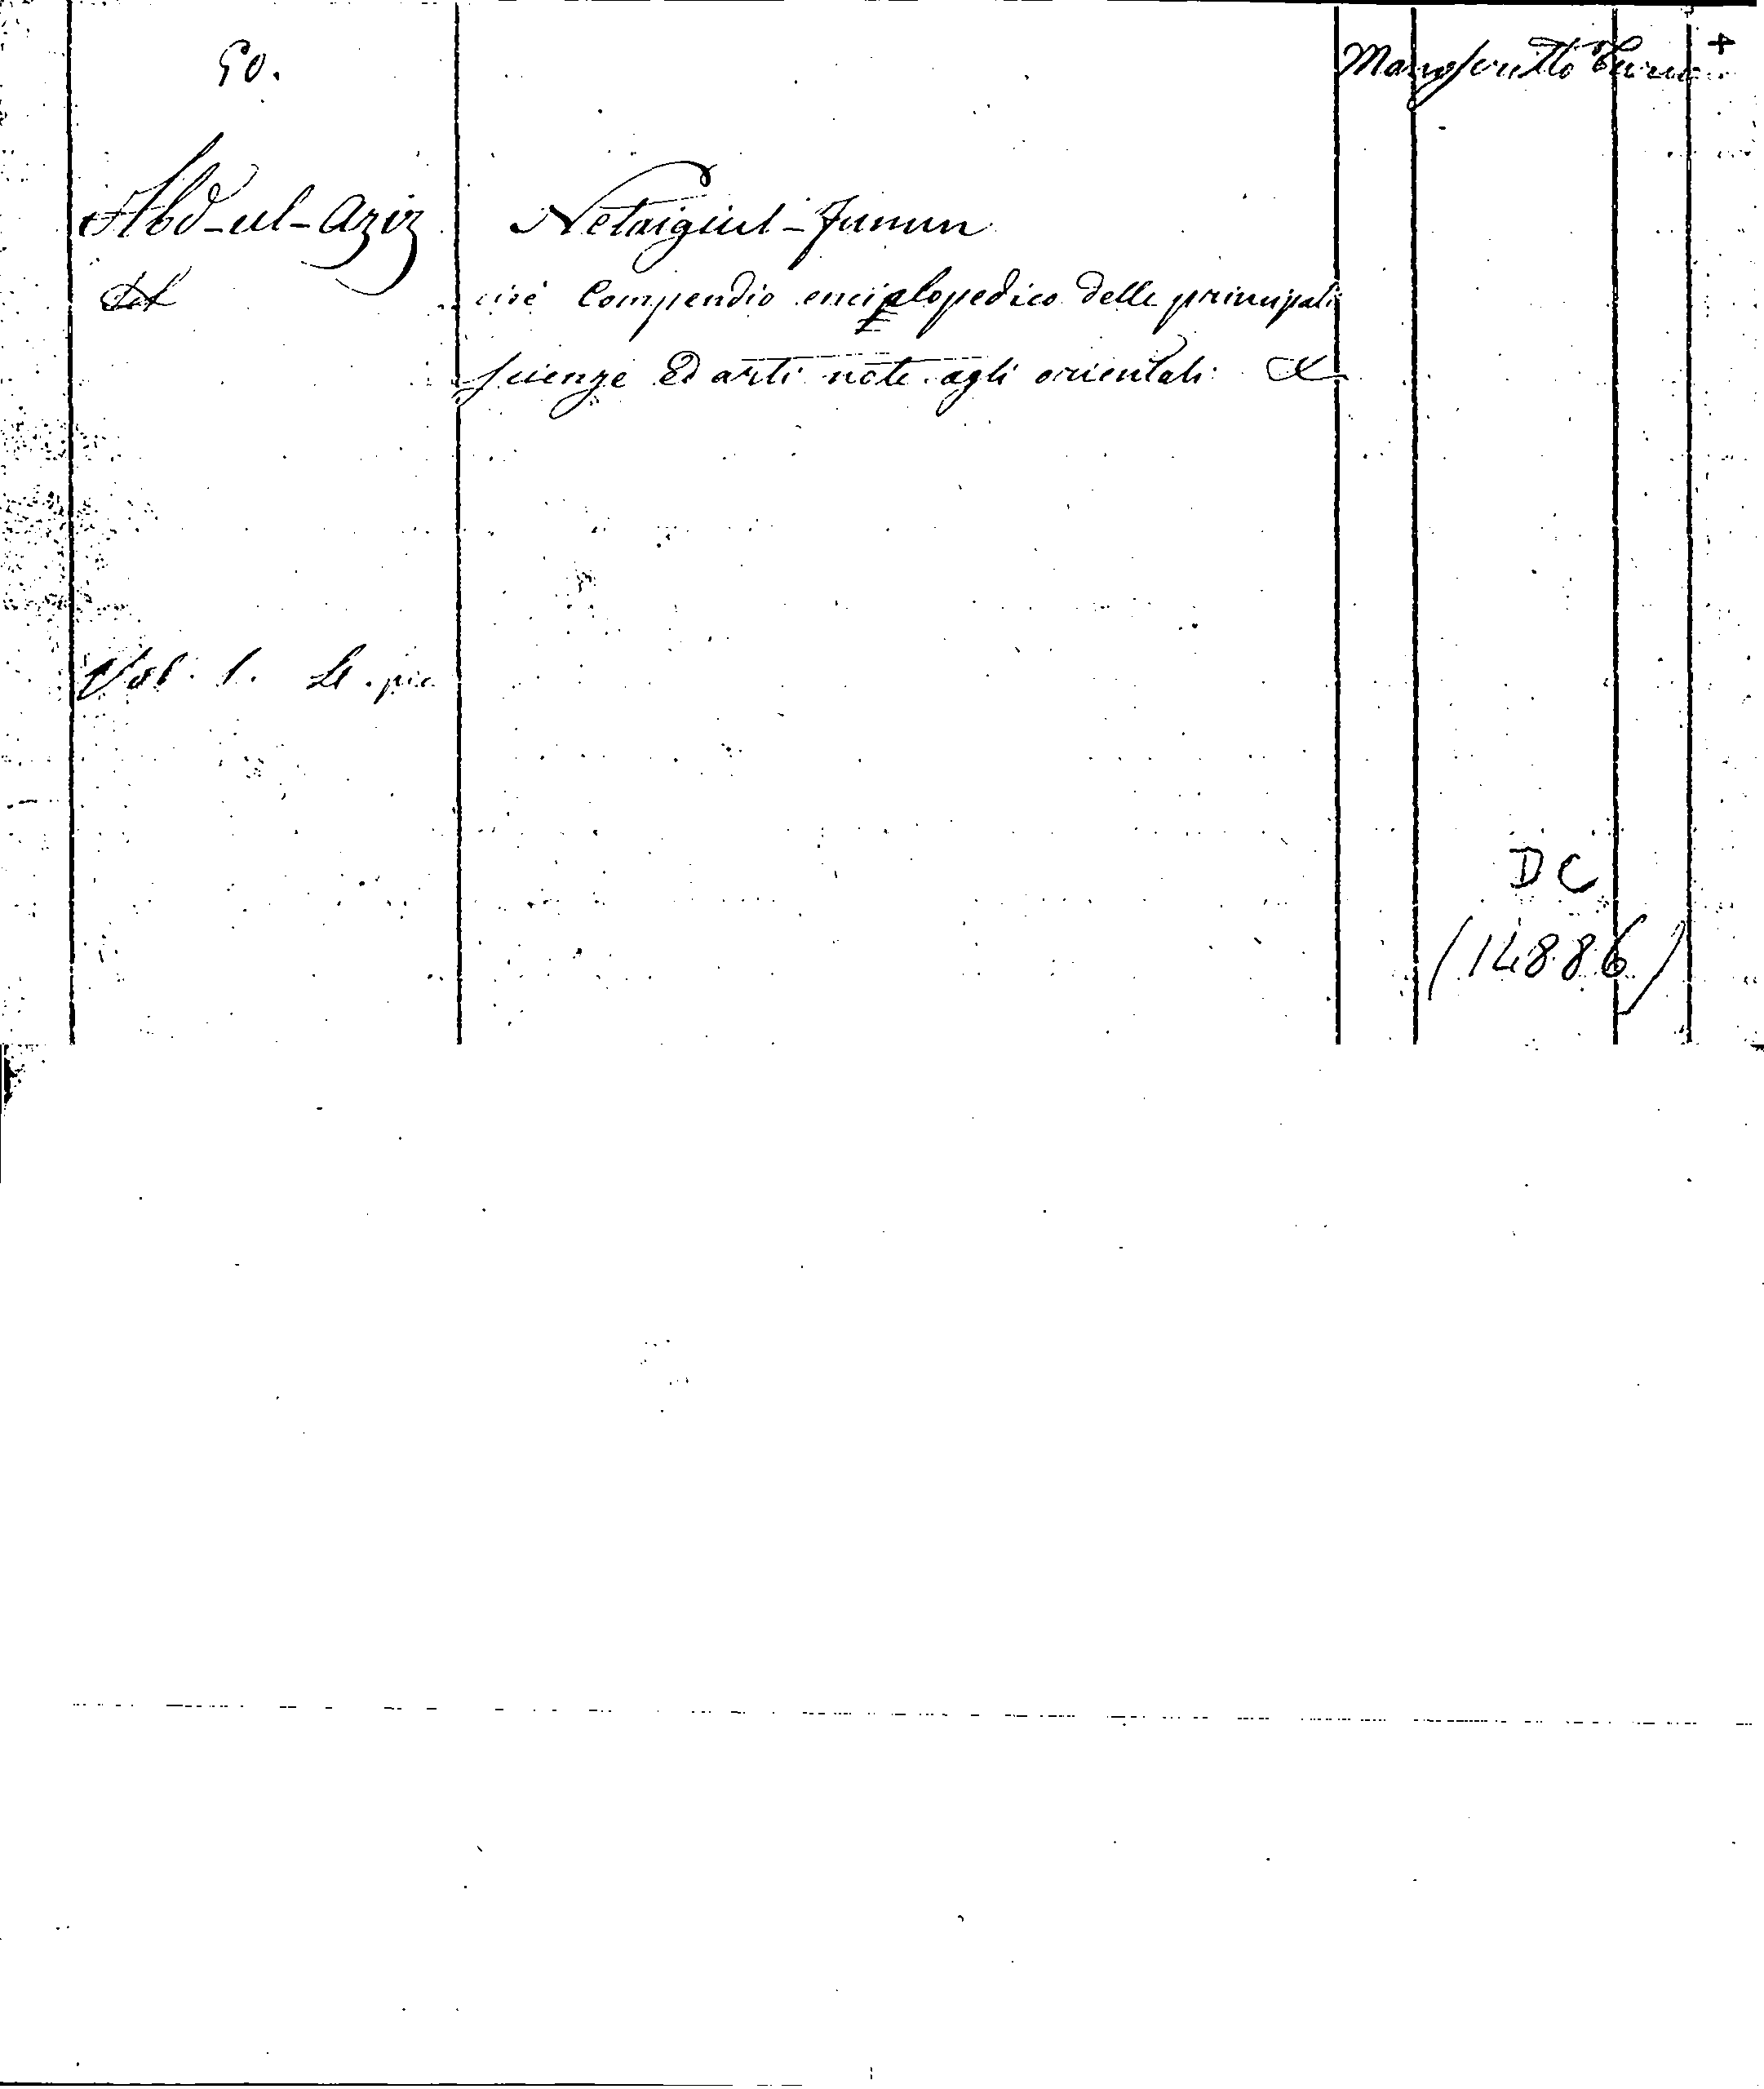 90.
Manoscritto Turco +
Abd-ul-Aziz
Netaigiul-funun
cioè Compendio enciclopedico delle principali
scienze ed arti note agli orientali
Vol. 1. 4. pic.
DC
(14886)